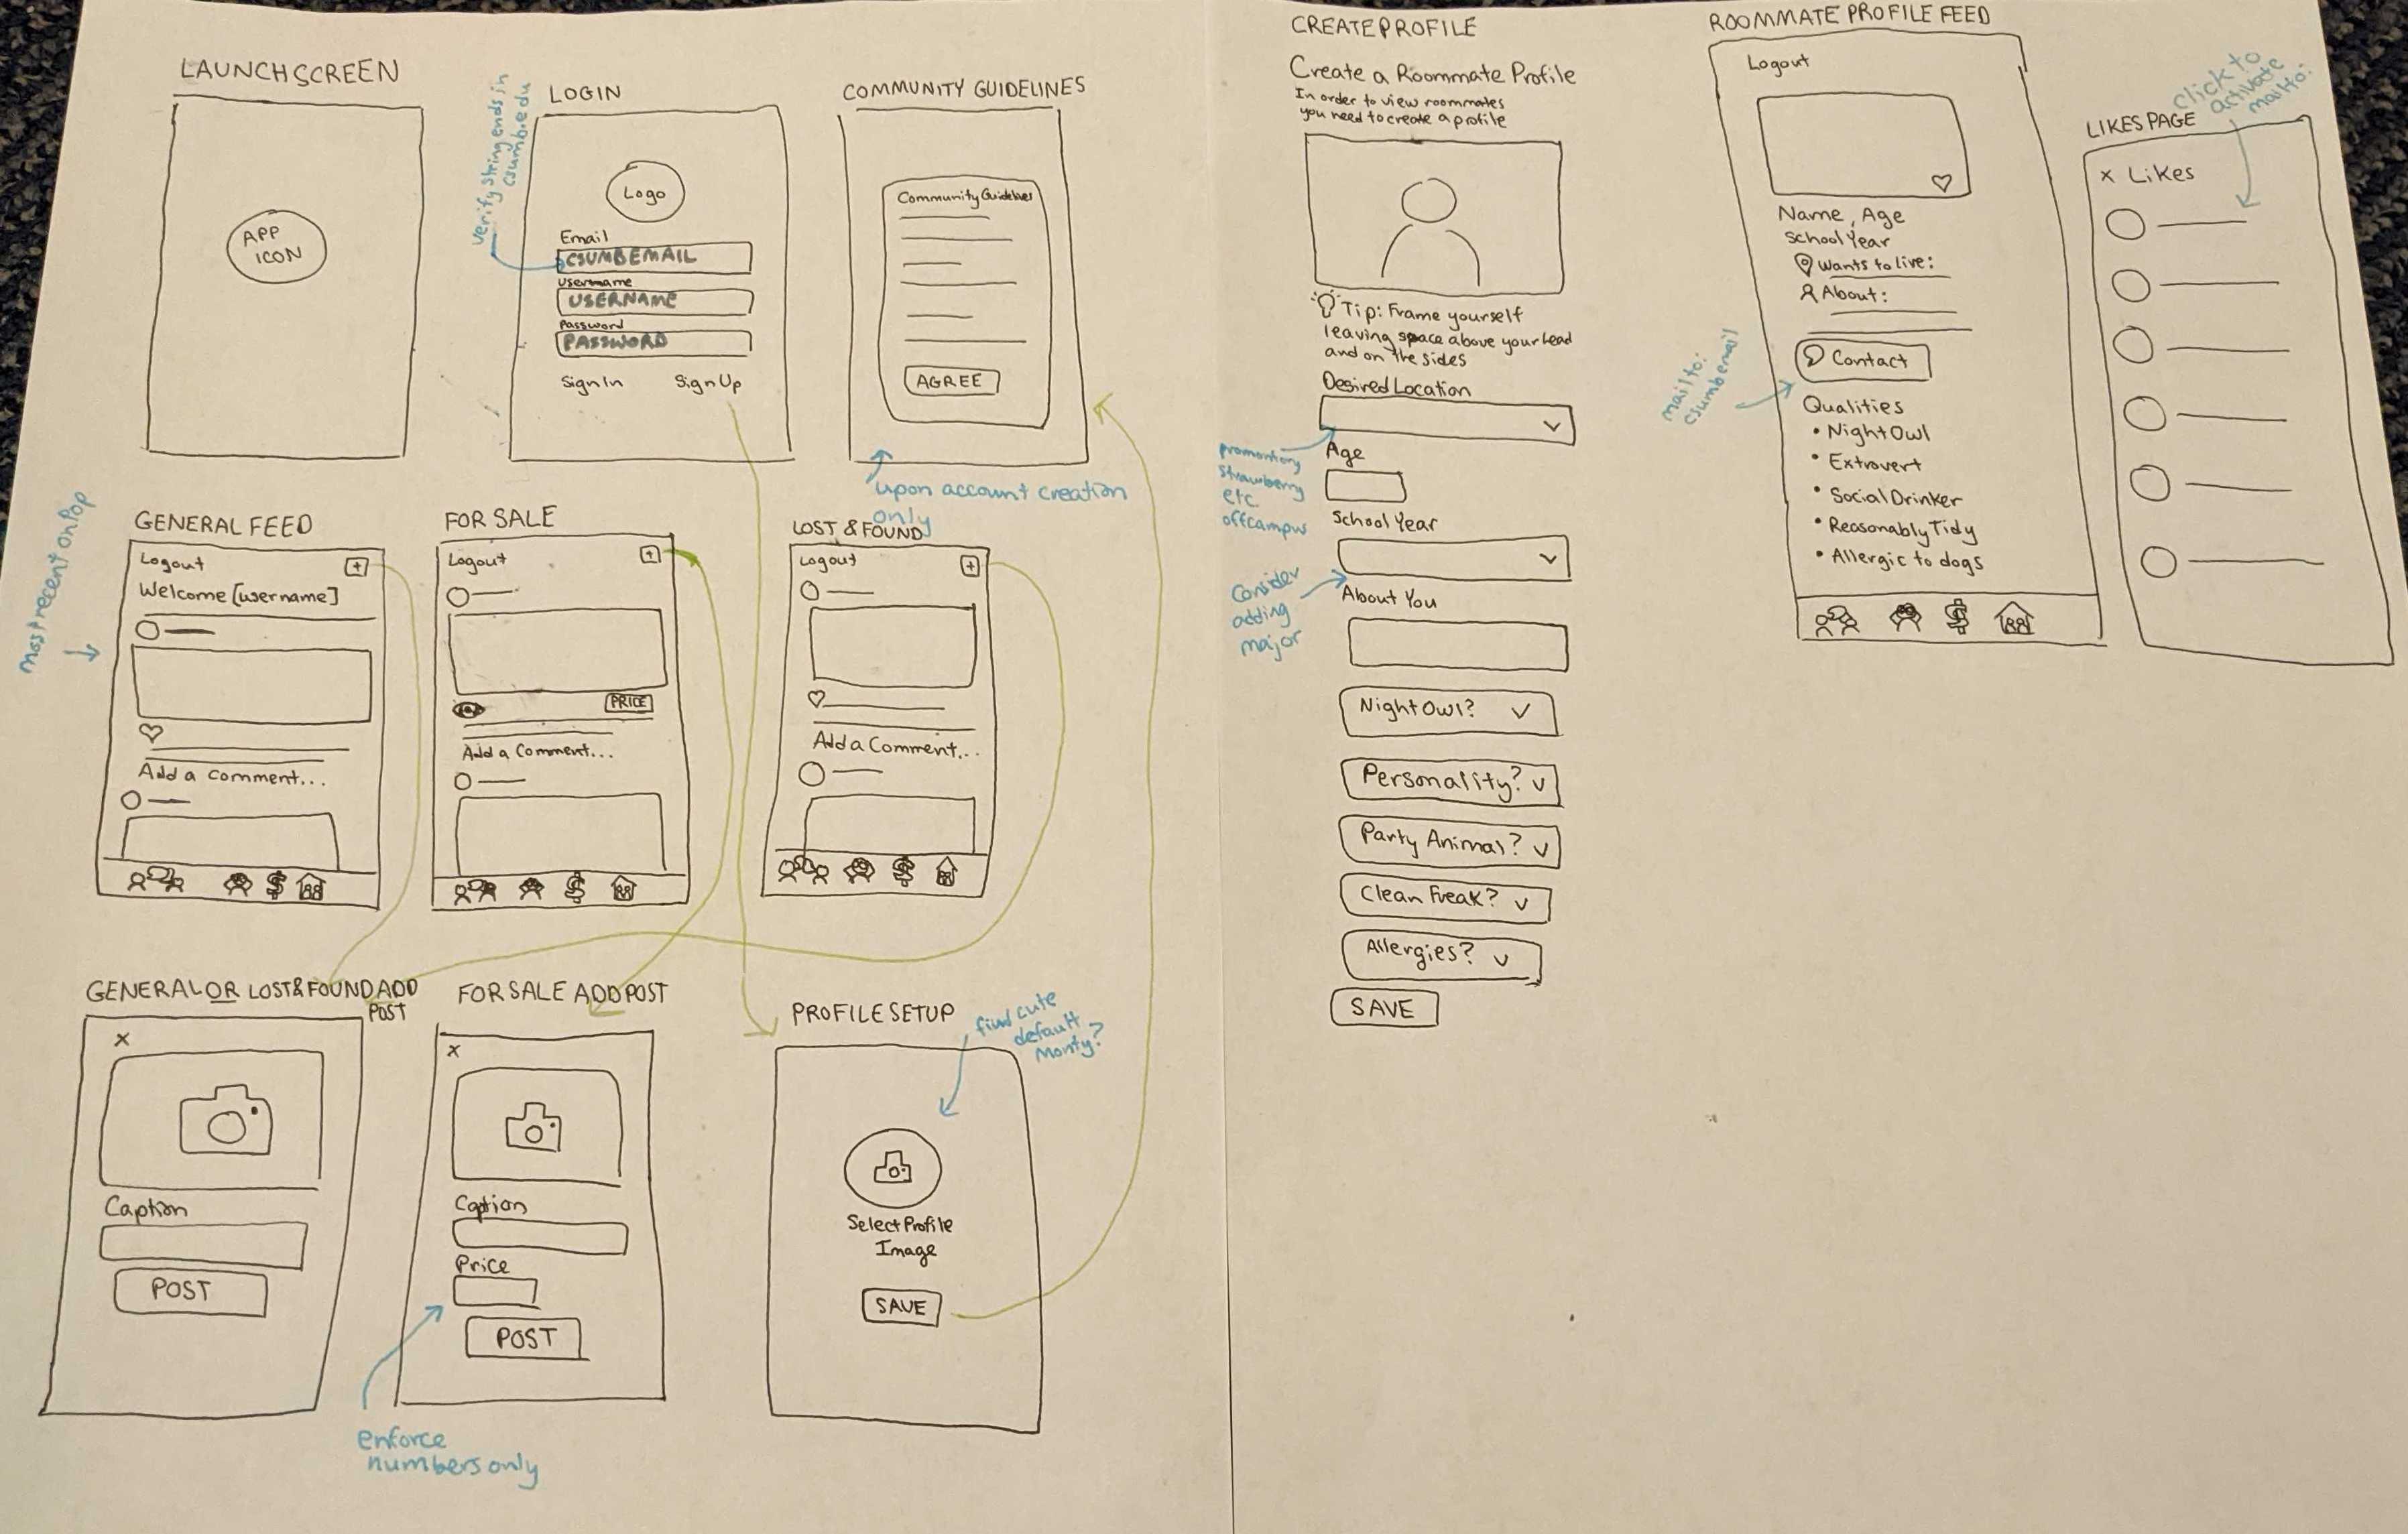 LAUNCH SCREEN
APP
ICON
verify string ends in
csumb.edu
LOGIN
Logo
Email
CSUMB EMAIL
Username
USERNAME
Password
PASSWORD
Sign In
Sign Up
COMMUNITY GUIDELINES
Community Guidelines
AGREE
upon account creation
only
most recent on top
GENERAL FEED
Logout
+
Welcome [username]
Add a Comment...
FOR SALE
Logout
+
PRICE
Add a Comment...
$
LOST & FOUND
Logout
+
Add a Comment...
$
GENERAL OR LOST & FOUND ADD
POST
X
Caption
POST
FOR SALE ADD POST
X
Caption
Price
POST
enforce
numbers only
PROFILE SETUP
find cute
default
Monty?
Select Profile
Image
SAVE
CREATE PROFILE
Create a Roommate Profile
In order to view roommates
you need to create a profile
Tip: Frame yourself
leaving space above your head
and on the sides
Desired Location
promontory
strawberry
etc.
offcampus
Age
School Year
Consider
adding
major
About You
Night Owl?
Personality?
Party Animal?
Clean Freak?
Allergies?
SAVE
ROOMMATE PROFILE FEED
Logout
Name, Age
School Year
Wants to live:
About:
Contact
mail to:
csumb email
Qualities
• Night Owl
• Extrovert
• Social Drinker
• Reasonably Tidy
• Allergic to dogs
$
click to
activate
mail to:
LIKES PAGE
X Likes